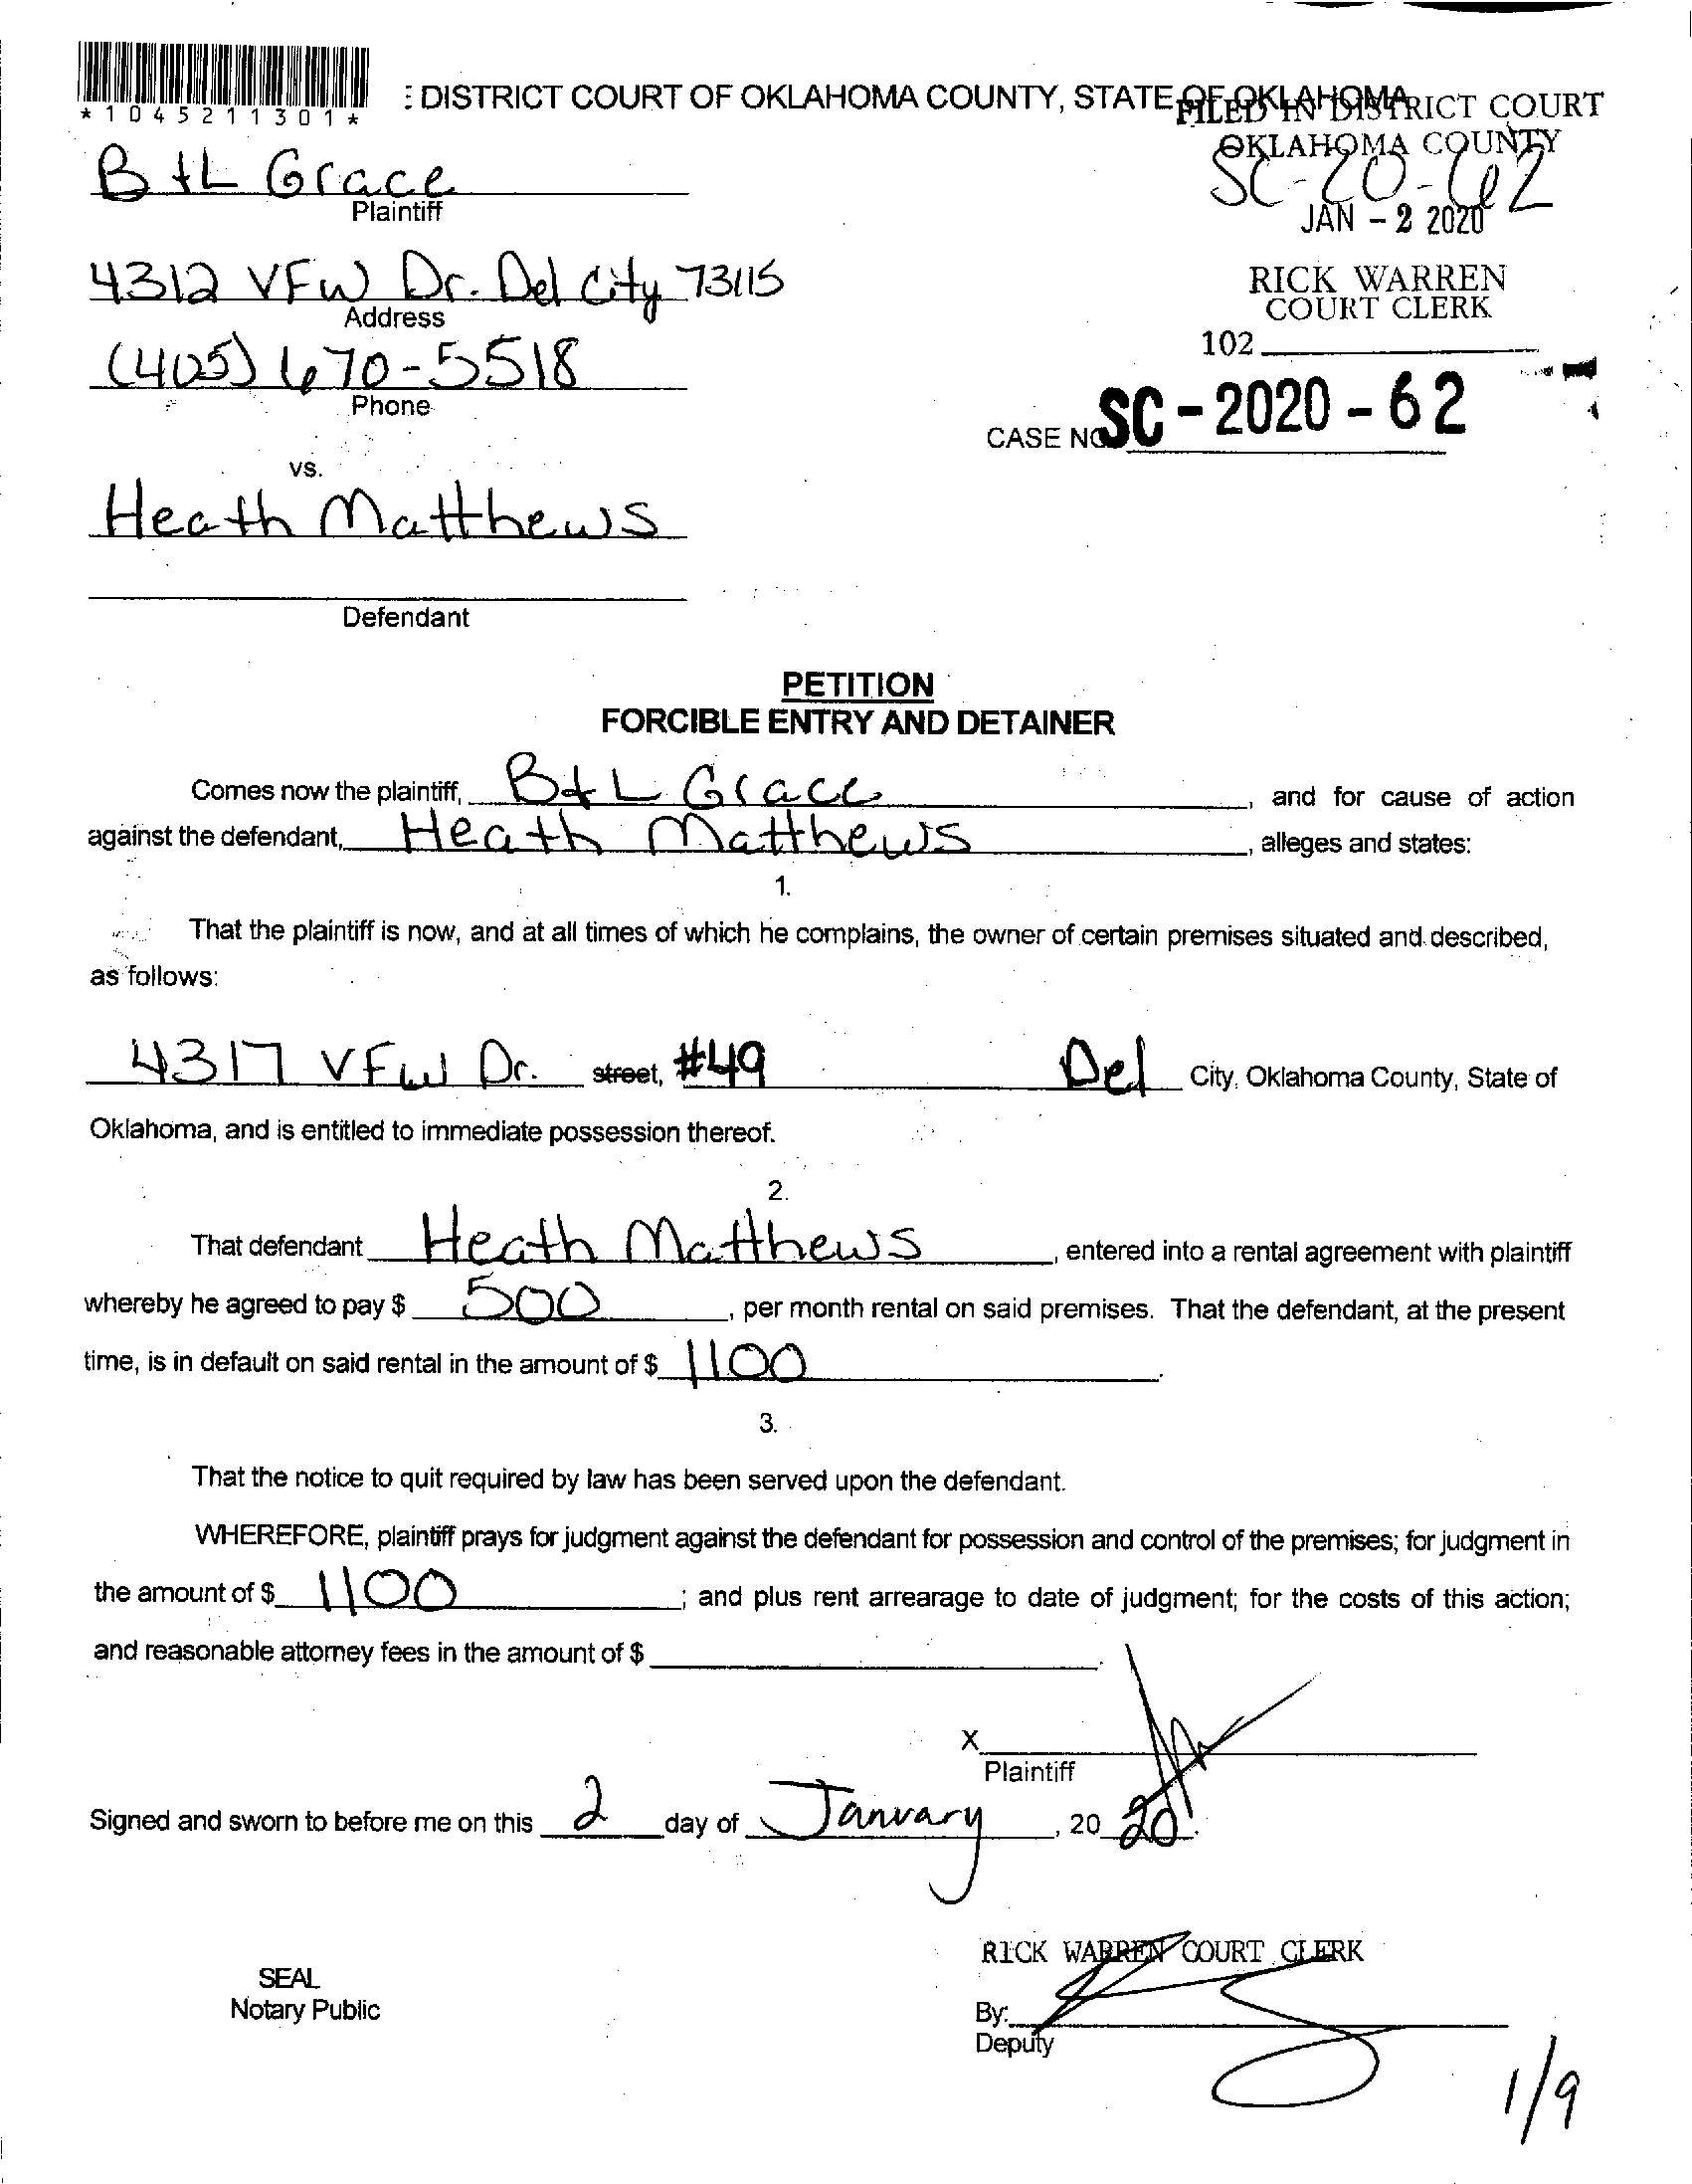 *1045211301*
: DISTRICT COURT OF OKLAHOMA COUNTY, STATE OF OKLAHOMA
FILED IN DISTRICT COURT
OKLAHOMA COUNTY
SC-20-62
JAN - 2 2020
RICK WARREN
COURT CLERK
102
B+L Grace
Plaintiff
4312 VFW Dr. Del City 73115
Address
(405) 670-5518
Phone
CASE NO. SC - 2020 - 62
vs.
Heath Matthews
Defendant
PETITION
FORCIBLE ENTRY AND DETAINER
Comes now the plaintiff, B+L Grace, and for cause of action
against the defendant, Heath Matthews, alleges and states:
1.
That the plaintiff is now, and at all times of which he complains, the owner of certain premises situated and described,
as follows:
4317 VFW Dr. street, #49 Del City, Oklahoma County, State of
Oklahoma, and is entitled to immediate possession thereof.
2.
That defendant Heath Matthews, entered into a rental agreement with plaintiff
whereby he agreed to pay $ 500, per month rental on said premises. That the defendant, at the present
time, is in default on said rental in the amount of $ 1100.
3.
That the notice to quit required by law has been served upon the defendant.
WHEREFORE, plaintiff prays for judgment against the defendant for possession and control of the premises; for judgment in
the amount of $ 1100; and plus rent arrearage to date of judgment; for the costs of this action;
and reasonable attorney fees in the amount of $
X
Plaintiff
Signed and sworn to before me on this 2 day of January, 20 20.
RICK WARREN COURT CLERK
SEAL
Notary Public
By:
Deputy
1/9